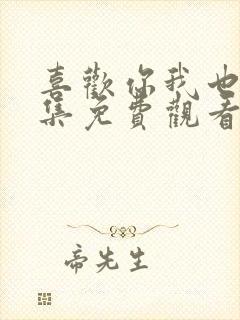 喜歡你我也
集免費觀看
帝先生